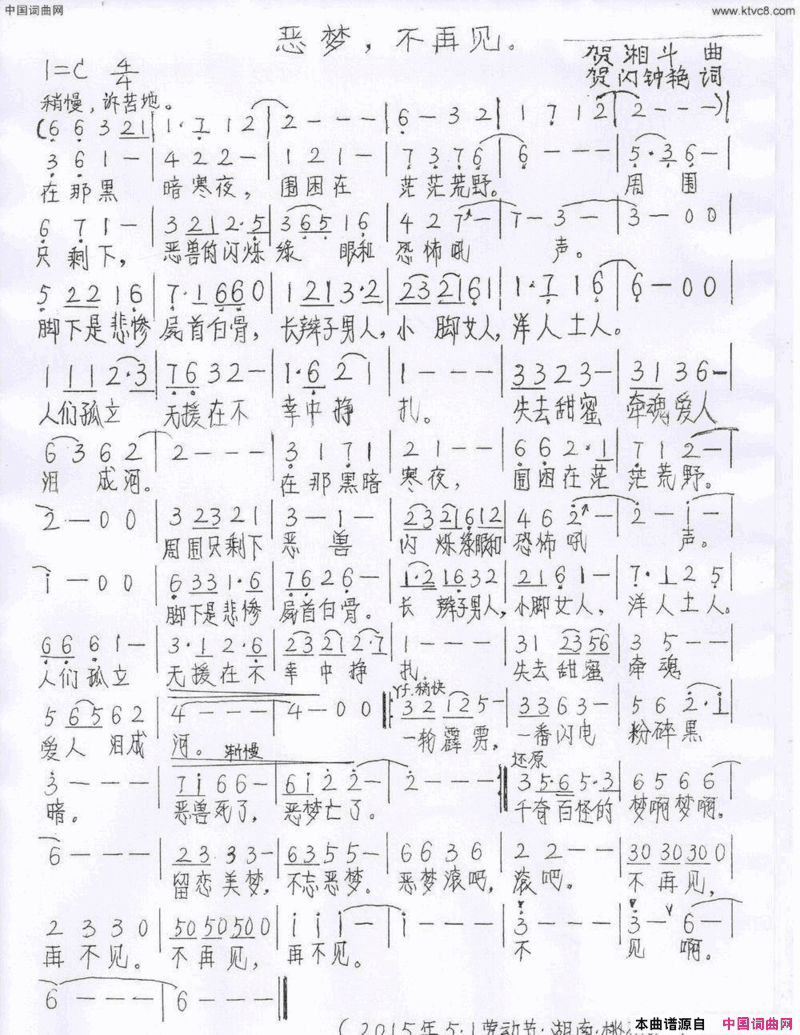 中国词曲网
www.ktvc8.com
恶梦，不再见。
贺湘斗 曲
贺闪钟艳 词
1=C 4/4
稍慢，诉苦地。
(6 6 3 21 | 1·7 12 | 2 - - - | 6 - 3 2 | 1 7 1 2 | 2 - - -) |
3 6 1 - | 4 2 2 - | 1 2 1 - | 7 3 7 6 | 6 - - - | 5·3 6 - |
在那黑 暗寒夜，围困在 茫茫荒野。 周围
6 7 1 - | 3 21 2·5 | 3 65 16 | 4 2 7 - | 7 - 3 - | 3 - 0 0 |
只剩下，恶兽的闪烁绿 眼和 恐怖吼 声。
5 22 1 6 | 7·1 66 0 | 1 21 3·2 | 23 21 61 | 1·7 1 6 | 6 - 0 0 |
脚下是悲惨 尸首白骨，长辫子男人，小脚女人，洋人土人。
1 11 2·3 | 76 32 - | 1·6 2 1 | 1 - - - | 33 23 - | 31 36 - |
人们孤立 无援在不 幸中挣 扎。 失去甜蜜 牵魂爱人
6 3 6 2 | 2 - - - | 3 1 7 1 | 2 1 - - | 6 6 2·1 | 7 1 2 - |
泪 成河。 在那黑暗 寒夜， 围困在茫 茫荒野。
2 - 0 0 | 3 23 21 | 3 - 1 - | 23 21 61 2 | 4 6 2 - | 2 - 1 - |
周围只剩下 恶 兽 闪 烁绿眼和 恐怖吼 声。
1 - 0 0 | 6 33 1·6 | 76 26 - | 1·2 16 32 | 21 61 - | 7·1 2 5 |
脚下是悲惨 尸首白骨。 长 辫子男人，小脚女人， 洋人土人。
66 61 - | 3·1 2·6 | 23 21 2·7 | 1 - - - | 31 23 56 | 3 5 - - |
人们孤立 无援在不 幸 中 挣 扎， 失去 甜蜜 牵 魂
稍快
5 65 62 | 4 - - - | 4 - 0 0 | 32 12 5 - | 33 63 - | 5 6 2·1 |
爱人 泪成 河。 一轮霹雳， 一番闪电 粉碎黑
渐慢
还原
3 - - - | 71 66 - | 61 22 - | 2 - - - | 35·6 5·3 | 6 5 6 6 |
暗。 恶兽死了， 恶梦亡了。 千奇百怪的 梦啊梦啊。
6 - - - | 23 33 - | 63 55 - | 6 6 3 6 | 2 2 - - | 30 30 30 0 |
留恋美梦，不忘恶梦。 恶梦滚吧， 滚吧。 不再见，
2 3 3 0 | 50 50 50 0 | i i i - | i - - - | 3 - - - | 3 - 6 - |
再不见。 不再见， 再不见。 不 见 啊。
6 - - - | 6 - - - ||
(2015年5·1劳动节·湖南·
本曲谱源自
中国词曲网